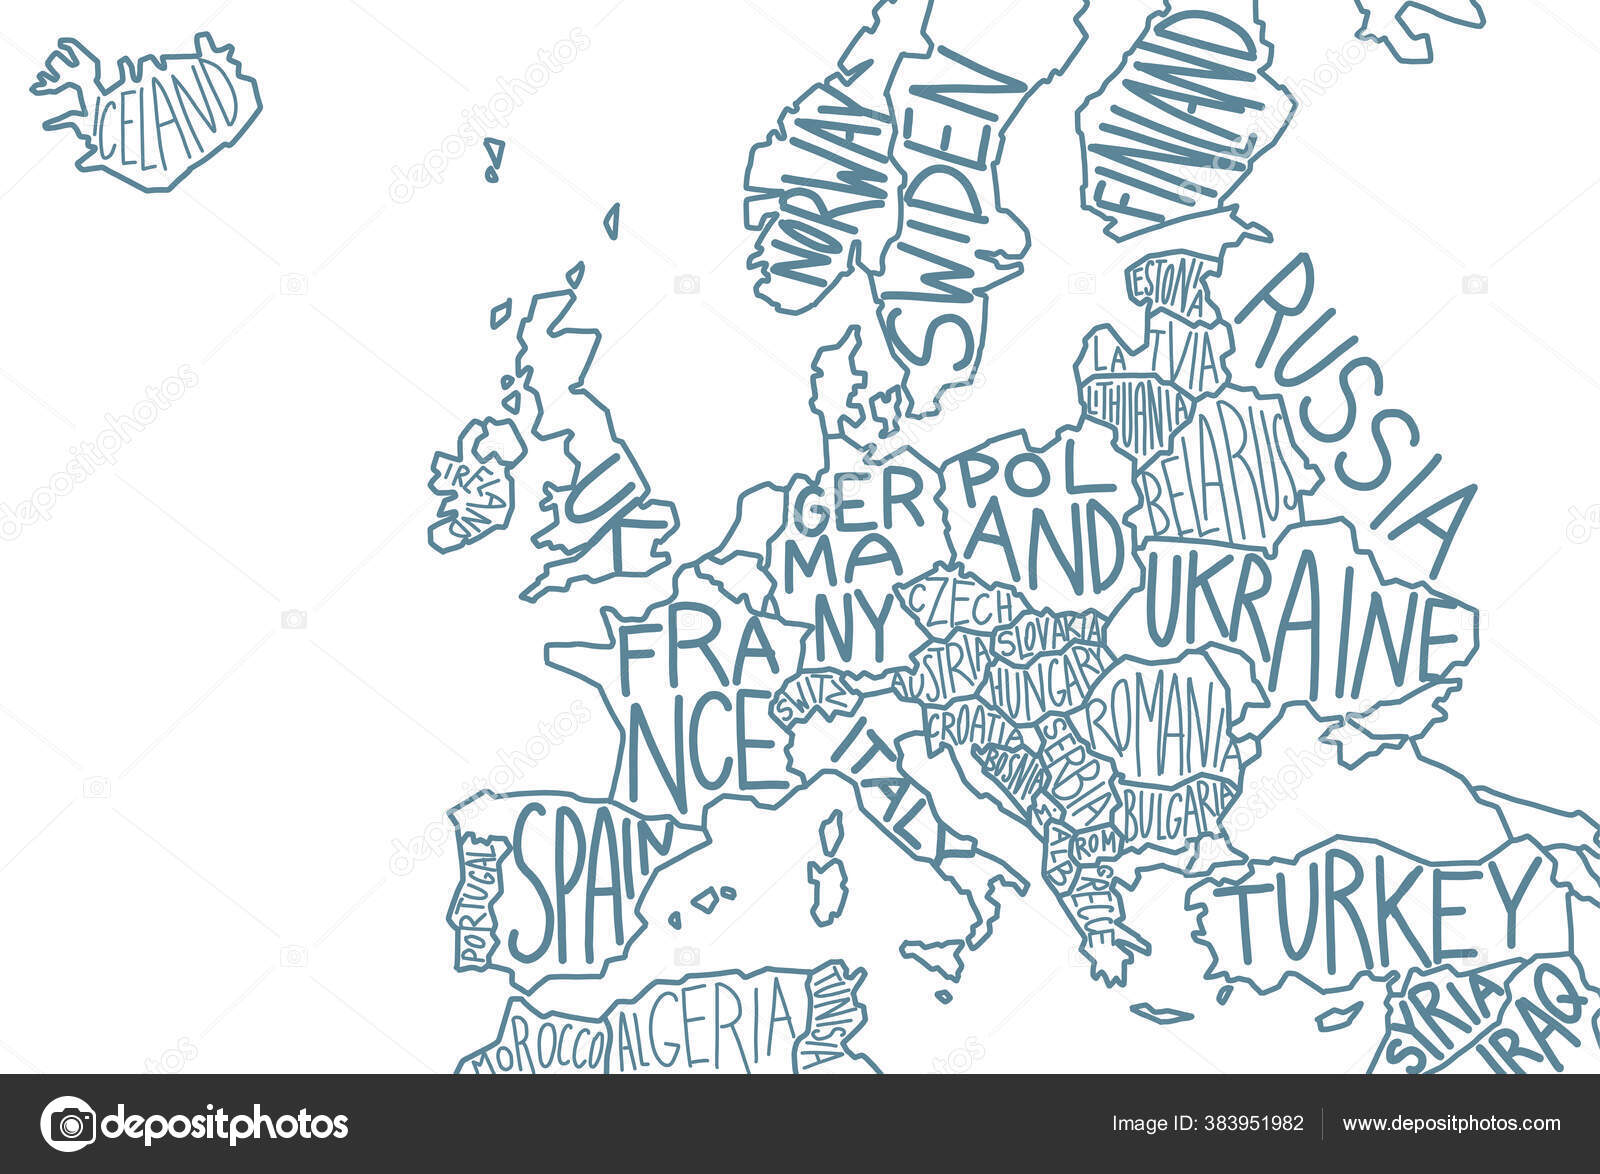 ICELAND
NORWAY
SWIDEN
FINLAND
ESTONIA
LATVIA
LITHUANIA
BELARUS
RUSSIA
IRELAND
UK
GER
MA
NY
POL
AND
CZECH
SLOVAKIA
UKRAINE
FRA
NCE
SWITZ
AUSTRIA
HUNGARY
ROMANIA
CROATIA
BOSNIA
SERBIA
ITALY
BULGARIA
ROM
ALB
GRECE
SPAIN
PORTUGAL
TURKEY
MOROCCO
ALGERIA
TUNISIA
SYRIA
IRAQ
depositphotos
Image ID: 383951982
www.depositphotos.com